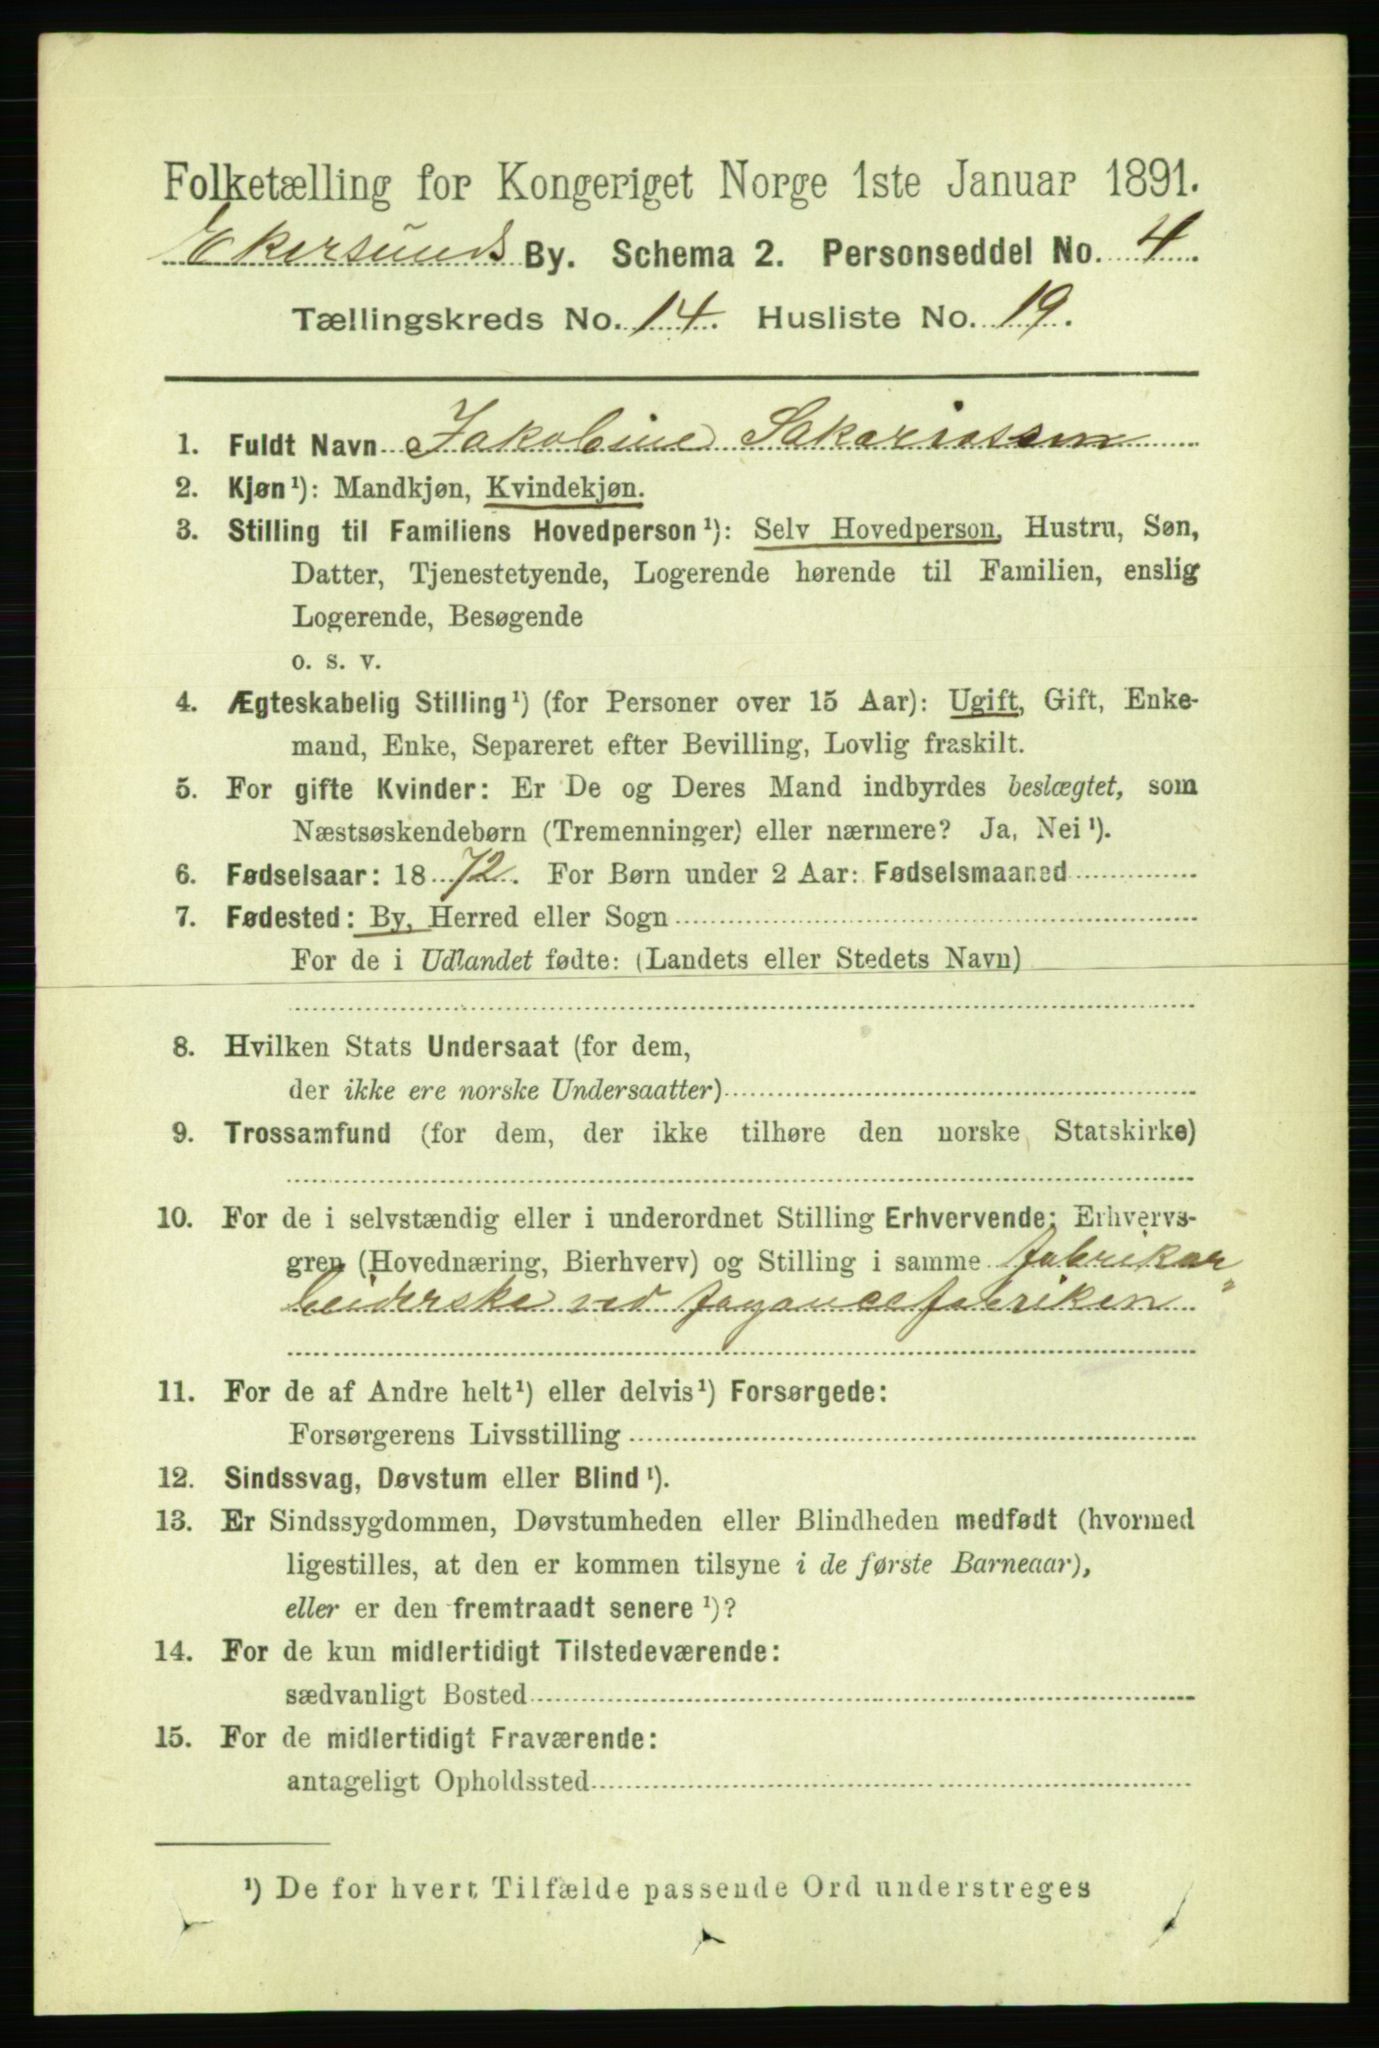 Folketælling for Kongeriget Norge 1ste Januar 1891.
Ekersunds By. Schema 2. Personseddel No. 4.
Tællingskreds No. 14. Husliste No. 19.
1. Fuldt Navn Jakobine Sakariassen
2. Kjøn¹): Mandkjøn, Kvindekjøn.
3. Stilling til Familiens Hovedperson¹): Selv Hovedperson, Hustru, Søn,
Datter, Tjenestetyende, Logerende hørende til Familien, enslig
Logerende, Besøgende
o. s. v.
4. Ægteskabelig Stilling¹) (for Personer over 15 Aar): Ugift, Gift, Enke-
mand, Enke, Separeret efter Bevilling, Lovlig fraskilt.
5. For gifte Kvinder: Er De og Deres Mand indbyrdes beslægtet, som
Næstsøskendebørn (Tremenninger) eller nærmere? Ja, Nei¹).
6. Fødselsaar: 1872. For Børn under 2 Aar: Fødselsmaaned
7. Fødested: By, Herred eller Sogn
For de i Udlandet fødte: (Landets eller Stedets Navn)
8. Hvilken Stats Undersaat (for dem,
der ikke ere norske Undersaatter)
9. Trossamfund (for dem, der ikke tilhøre den norske Statskirke)
10. For de i selvstændig eller i underordnet Stilling Erhvervende: Erhvervs-
gren (Hovednæring, Bierhverv) og Stilling i samme Fabrikar„
beiderske ved Fayancefabriken
11. For de af Andre helt¹) eller delvis¹) Forsørgede:
Forsørgerens Livsstilling
12. Sindssvag, Døvstum eller Blind¹).
13. Er Sindssygdommen, Døvstumheden eller Blindheden medfødt (hvormed
ligestilles, at den er kommen tilsyne i de første Barneaar),
eller er den fremtraadt senere¹)?
14. For de kun midlertidigt Tilstedeværende:
sædvanligt Bosted
15. For de midlertidigt Fraværende:
antageligt Opholdssted
¹) De for hvert Tilfælde passende Ord understreges